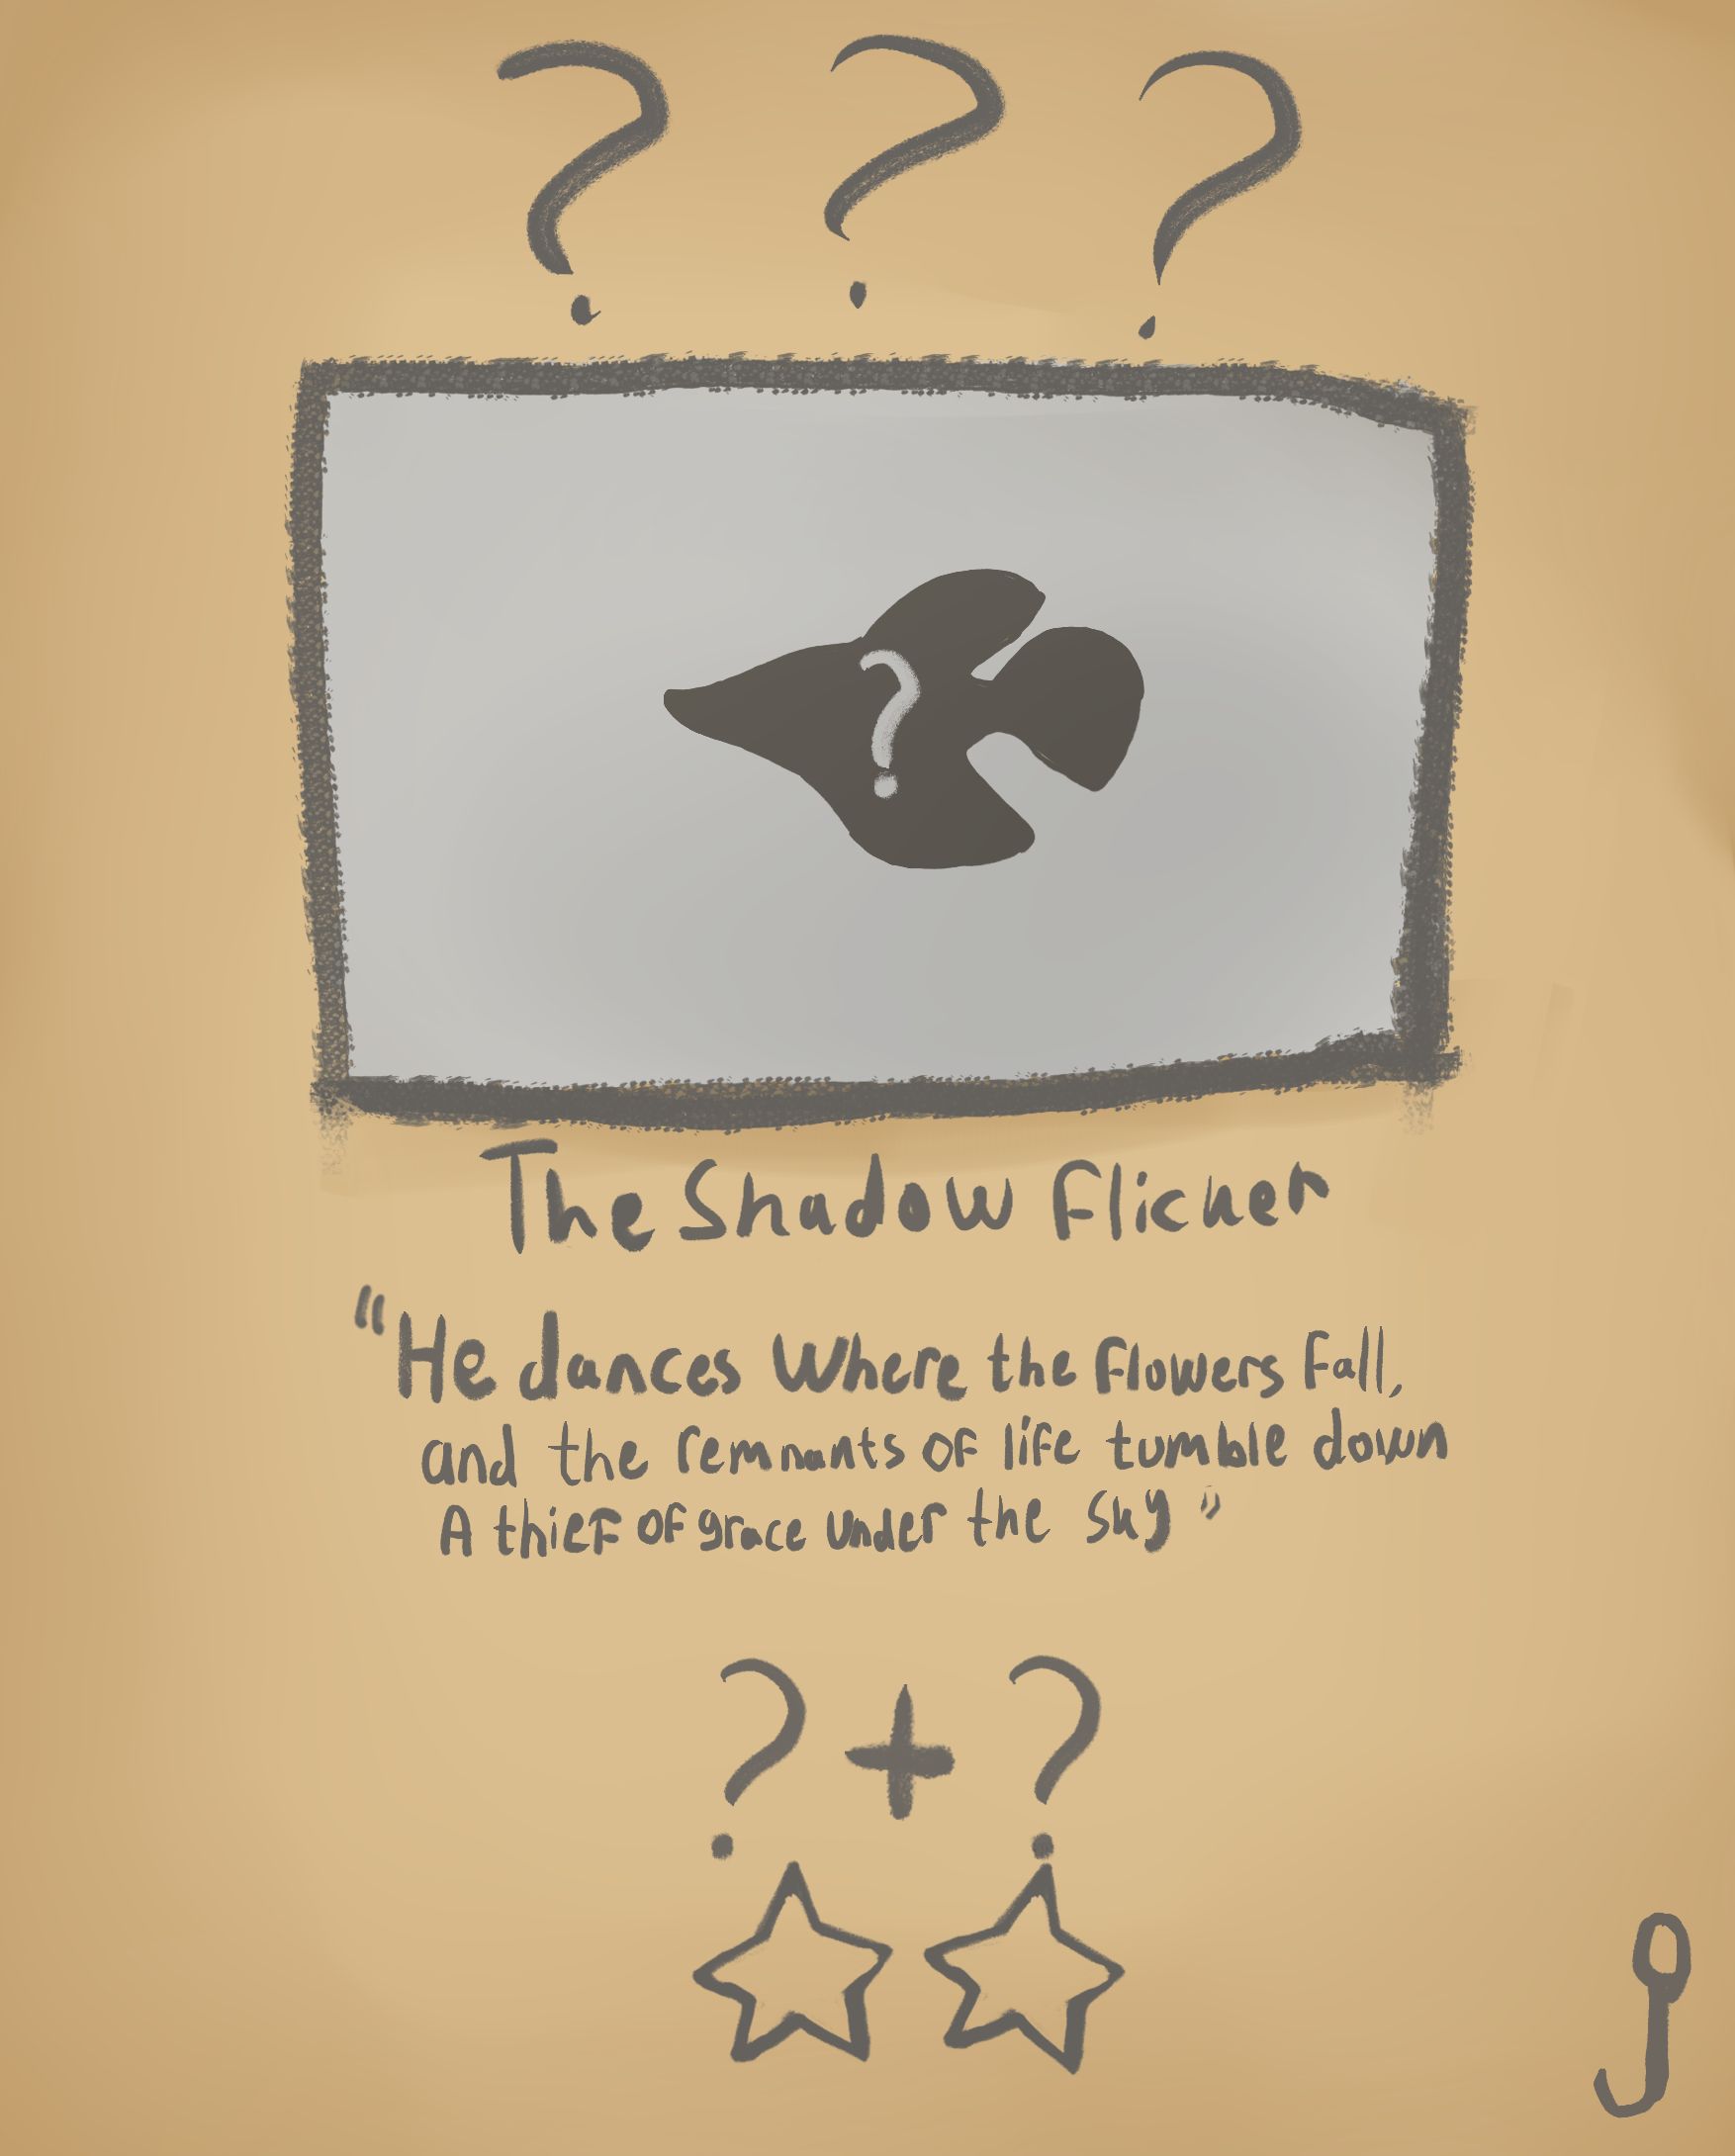 ? ? ?
?
The Shadow Flicker
"He dances Where the flowers fall,
and the remnants of life tumble down
A thief of grace under the sky"
? + ?